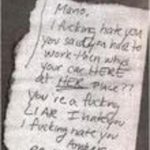 Mario,
I fucking hate you
you said you had to
work then why's
your car HERE
at HER place??
You're a fucking
LIAR I hate you
I fucking hate you
Amber